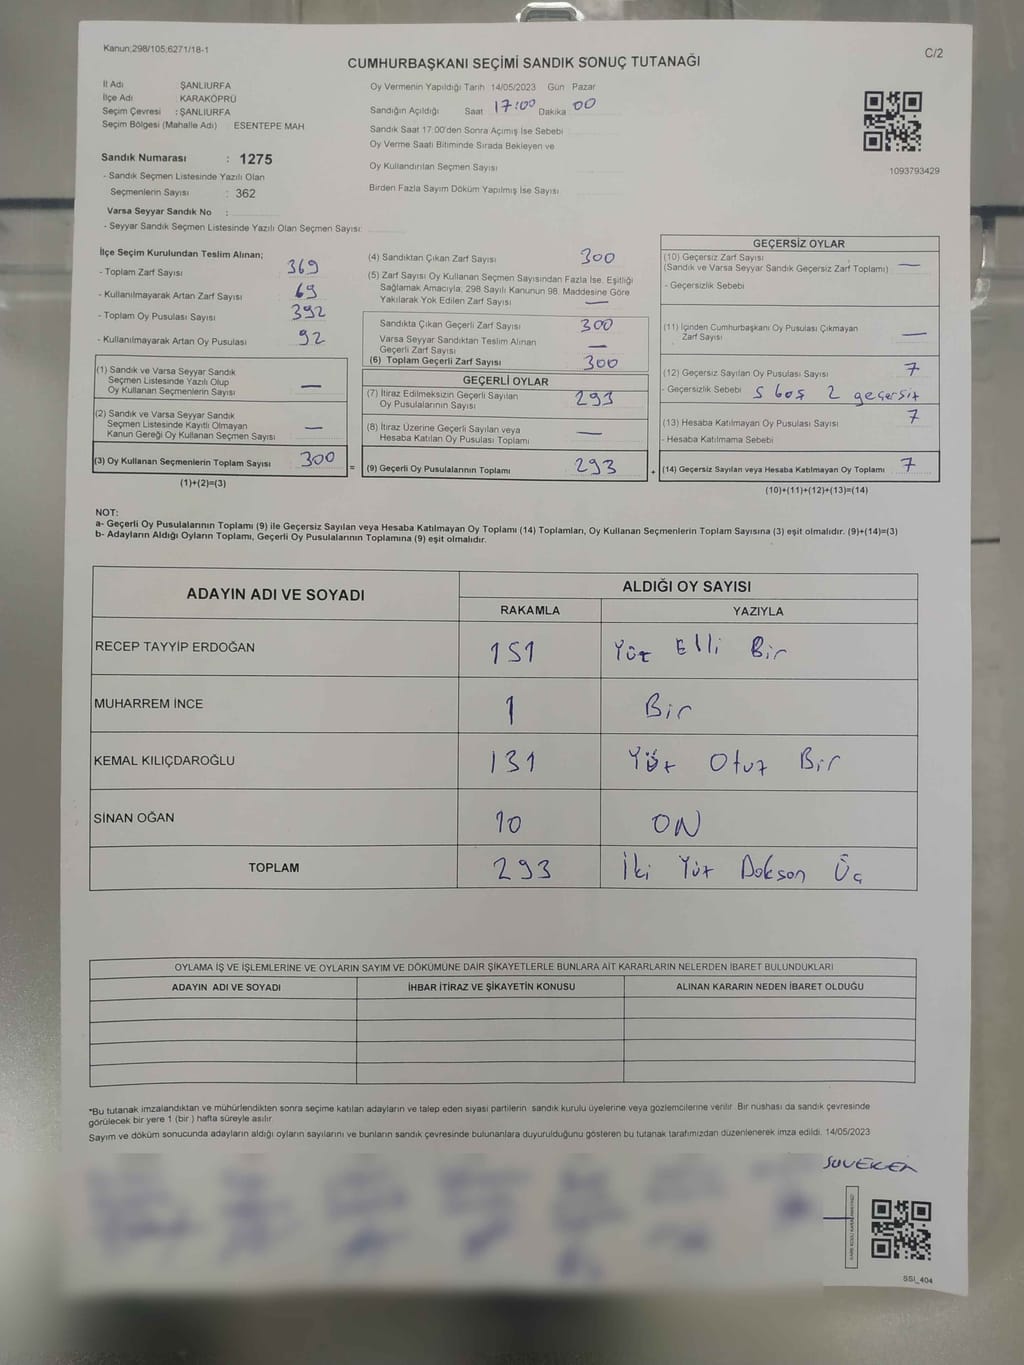 Kanun;298/105;6271/18-1
C/2
CUMHURBAŞKANI SEÇİMİ SANDIK SONUÇ TUTANAĞI
İl Adı ŞANLIURFA
İlçe Adı KARAKÖPRÜ
Seçim Çevresi : ŞANLIURFA
Seçim Bölgesi (Mahalle Adı) ESENTEPE MAH
Sandık Numarası : 1275
- Sandık Seçmen Listesinde Yazılı Olan
Seçmenlerin Sayısı : 362
Varsa Seyyar Sandık No :
- Seyyar Sandık Seçmen Listesinde Yazılı Olan Seçmen Sayısı:
Oy Vermenin Yapıldığı Tarih 14/05/2023 Gün Pazar
Sandığın Açıldığı Saat 17:00 Dakika 00
Sandık Saat 17 00'den Sonra Açımış İse Sebebi
Oy Verme Saati Bitiminde Sırada Bekleyen ve
Oy Kullandırılan Seçmen Sayısı
Birden Fazla Sayım Döküm Yapılmış İse Sayısı
1093793429
İlçe Seçim Kurulundan Teslim Alınan;
- Toplam Zarf Sayısı 369
- Kullanılmayarak Artan Zarf Sayısı 69
- Toplam Oy Pusulası Sayısı 392
- Kullanılmayarak Artan Oy Pusulası 92
(1) Sandık ve Varsa Seyyar Sandık
Seçmen Listesinde Yazılı Olup
Oy Kullanan Seçmenlerin Sayısı —
(2) Sandık ve Varsa Seyyar Sandık
Seçmen Listesinde Kayıtlı Olmayan
Kanun Gereği Oy Kullanan Seçmen Sayısı —
(3) Oy Kullanan Seçmenlerin Toplam Sayısı 300
(1)+(2)=(3)
(4) Sandıktan Çıkan Zarf Sayısı 300
(5) Zarf Sayısı Oy Kullanan Seçmen Sayısından Fazla İse, Eşitliği
Sağlamak Amacıyla, 298 Sayılı Kanunun 98. Maddesine Göre
Yakılarak Yok Edilen Zarf Sayısı —
Sandıkta Çıkan Geçerli Zarf Sayısı 300
Varsa Seyyar Sandıktan Teslim Alınan
Geçerli Zarf Sayısı —
(6) Toplam Geçerli Zarf Sayısı 300
GEÇERLİ OYLAR
(7) İtiraz Edilmeksizin Geçerli Sayılan
Oy Pusulalarının Sayısı 293
(8) İtiraz Üzerine Geçerli Sayılan veya
Hesaba Katılan Oy Pusulası Toplamı —
=
(9) Geçerli Oy Pusulalarının Toplamı 293
+
GEÇERSİZ OYLAR
(10) Geçersiz Zarf Sayısı
(Sandık ve Varsa Seyyar Sandık Geçersiz Zarf Toplamı) —
- Geçersizlik Sebebi
(11) İçinden Cumhurbaşkanı Oy Pusulası Çıkmayan
Zarf Sayısı —
(12) Geçersiz Sayılan Oy Pusulası Sayısı 7
- Geçersizlik Sebebi 5 boş 2 geçersiz
(13) Hesaba Katılmayan Oy Pusulası Sayısı 7
- Hesaba Katılmama Sebebi
(14) Geçersiz Sayılan veya Hesaba Katılmayan Oy Toplamı 7
(10)+(11)+(12)+(13)=(14)
NOT:
a- Geçerli Oy Pusulalarının Toplamı (9) ile Geçersiz Sayılan veya Hesaba Katılmayan Oy Toplamı (14) Toplamları, Oy Kullanan Seçmenlerin Toplam Sayısına (3) eşit olmalıdır. (9)+(14)=(3)
b- Adayların Aldığı Oyların Toplamı, Geçerli Oy Pusulalarının Toplamına (9) eşit olmalıdır.
ADAYIN ADI VE SOYADI
ALDIĞI OY SAYISI
RAKAMLA YAZIYLA
RECEP TAYYİP ERDOĞAN 151 Yüz Elli Bir
MUHARREM İNCE 1 Bir
KEMAL KILIÇDAROĞLU 131 Yüz Otuz Bir
SİNAN OĞAN 10 ON
TOPLAM 293 İki Yüz Doksan Üç
OYLAMA İŞ VE İŞLEMLERİNE VE OYLARIN SAYIM VE DÖKÜMÜNE DAİR ŞİKAYETLERLE BUNLARA AİT KARARLARIN NELERDEN İBARET BULUNDUKLARI
ADAYIN ADI VE SOYADI İHBAR İTİRAZ VE ŞİKAYETİN KONUSU ALINAN KARARIN NEDEN İBARET OLDUĞU
*Bu tutanak imzalandıktan ve mühürlendikten sonra seçime katılan adayların ve talep eden siyasi partilerin sandık kurulu üyelerine veya gözlemcilerine verilir. Bir nüshası da sandık çevresinde
görülecek bir yere 1 (bir) hafta süreyle asılır
Sayım ve döküm sonucunda adayların aldığı oyların sayılarını ve bunların sandık çevresinde bulunanlara duyurulduğunu gösteren bu tutanak tarafımızdan düzenlenerek imza edildi. 14/05/2023
SSI_404